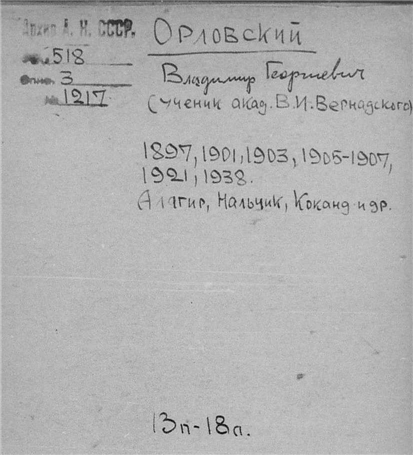 Архив А. Н. СССР.
518
Опись 3
№ 1217
ОРЛОВСКИЙ
Владимир Георгиевич
(ученик акад. В.И. Вернадского)
1897, 1901, 1903, 1905-1907,
1921, 1938.
Алагир, Нальчик, Коканд и др.
13п-18п.